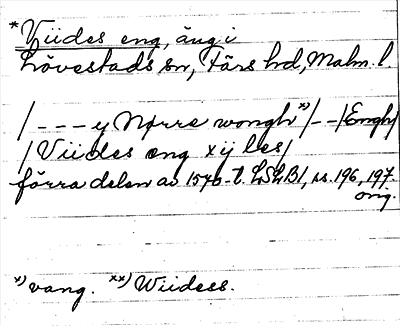 *Viides eng, äng i
Lövestads sn, Färs hd, Malm. l
/ - - - y Nørre wongh x)/ - - /Engh/
/ Viides eng xij les/
förra delen av 1570-t. LSLB 1, ss. 196, 197.
orig.
x) vang. xx) Wiidess.